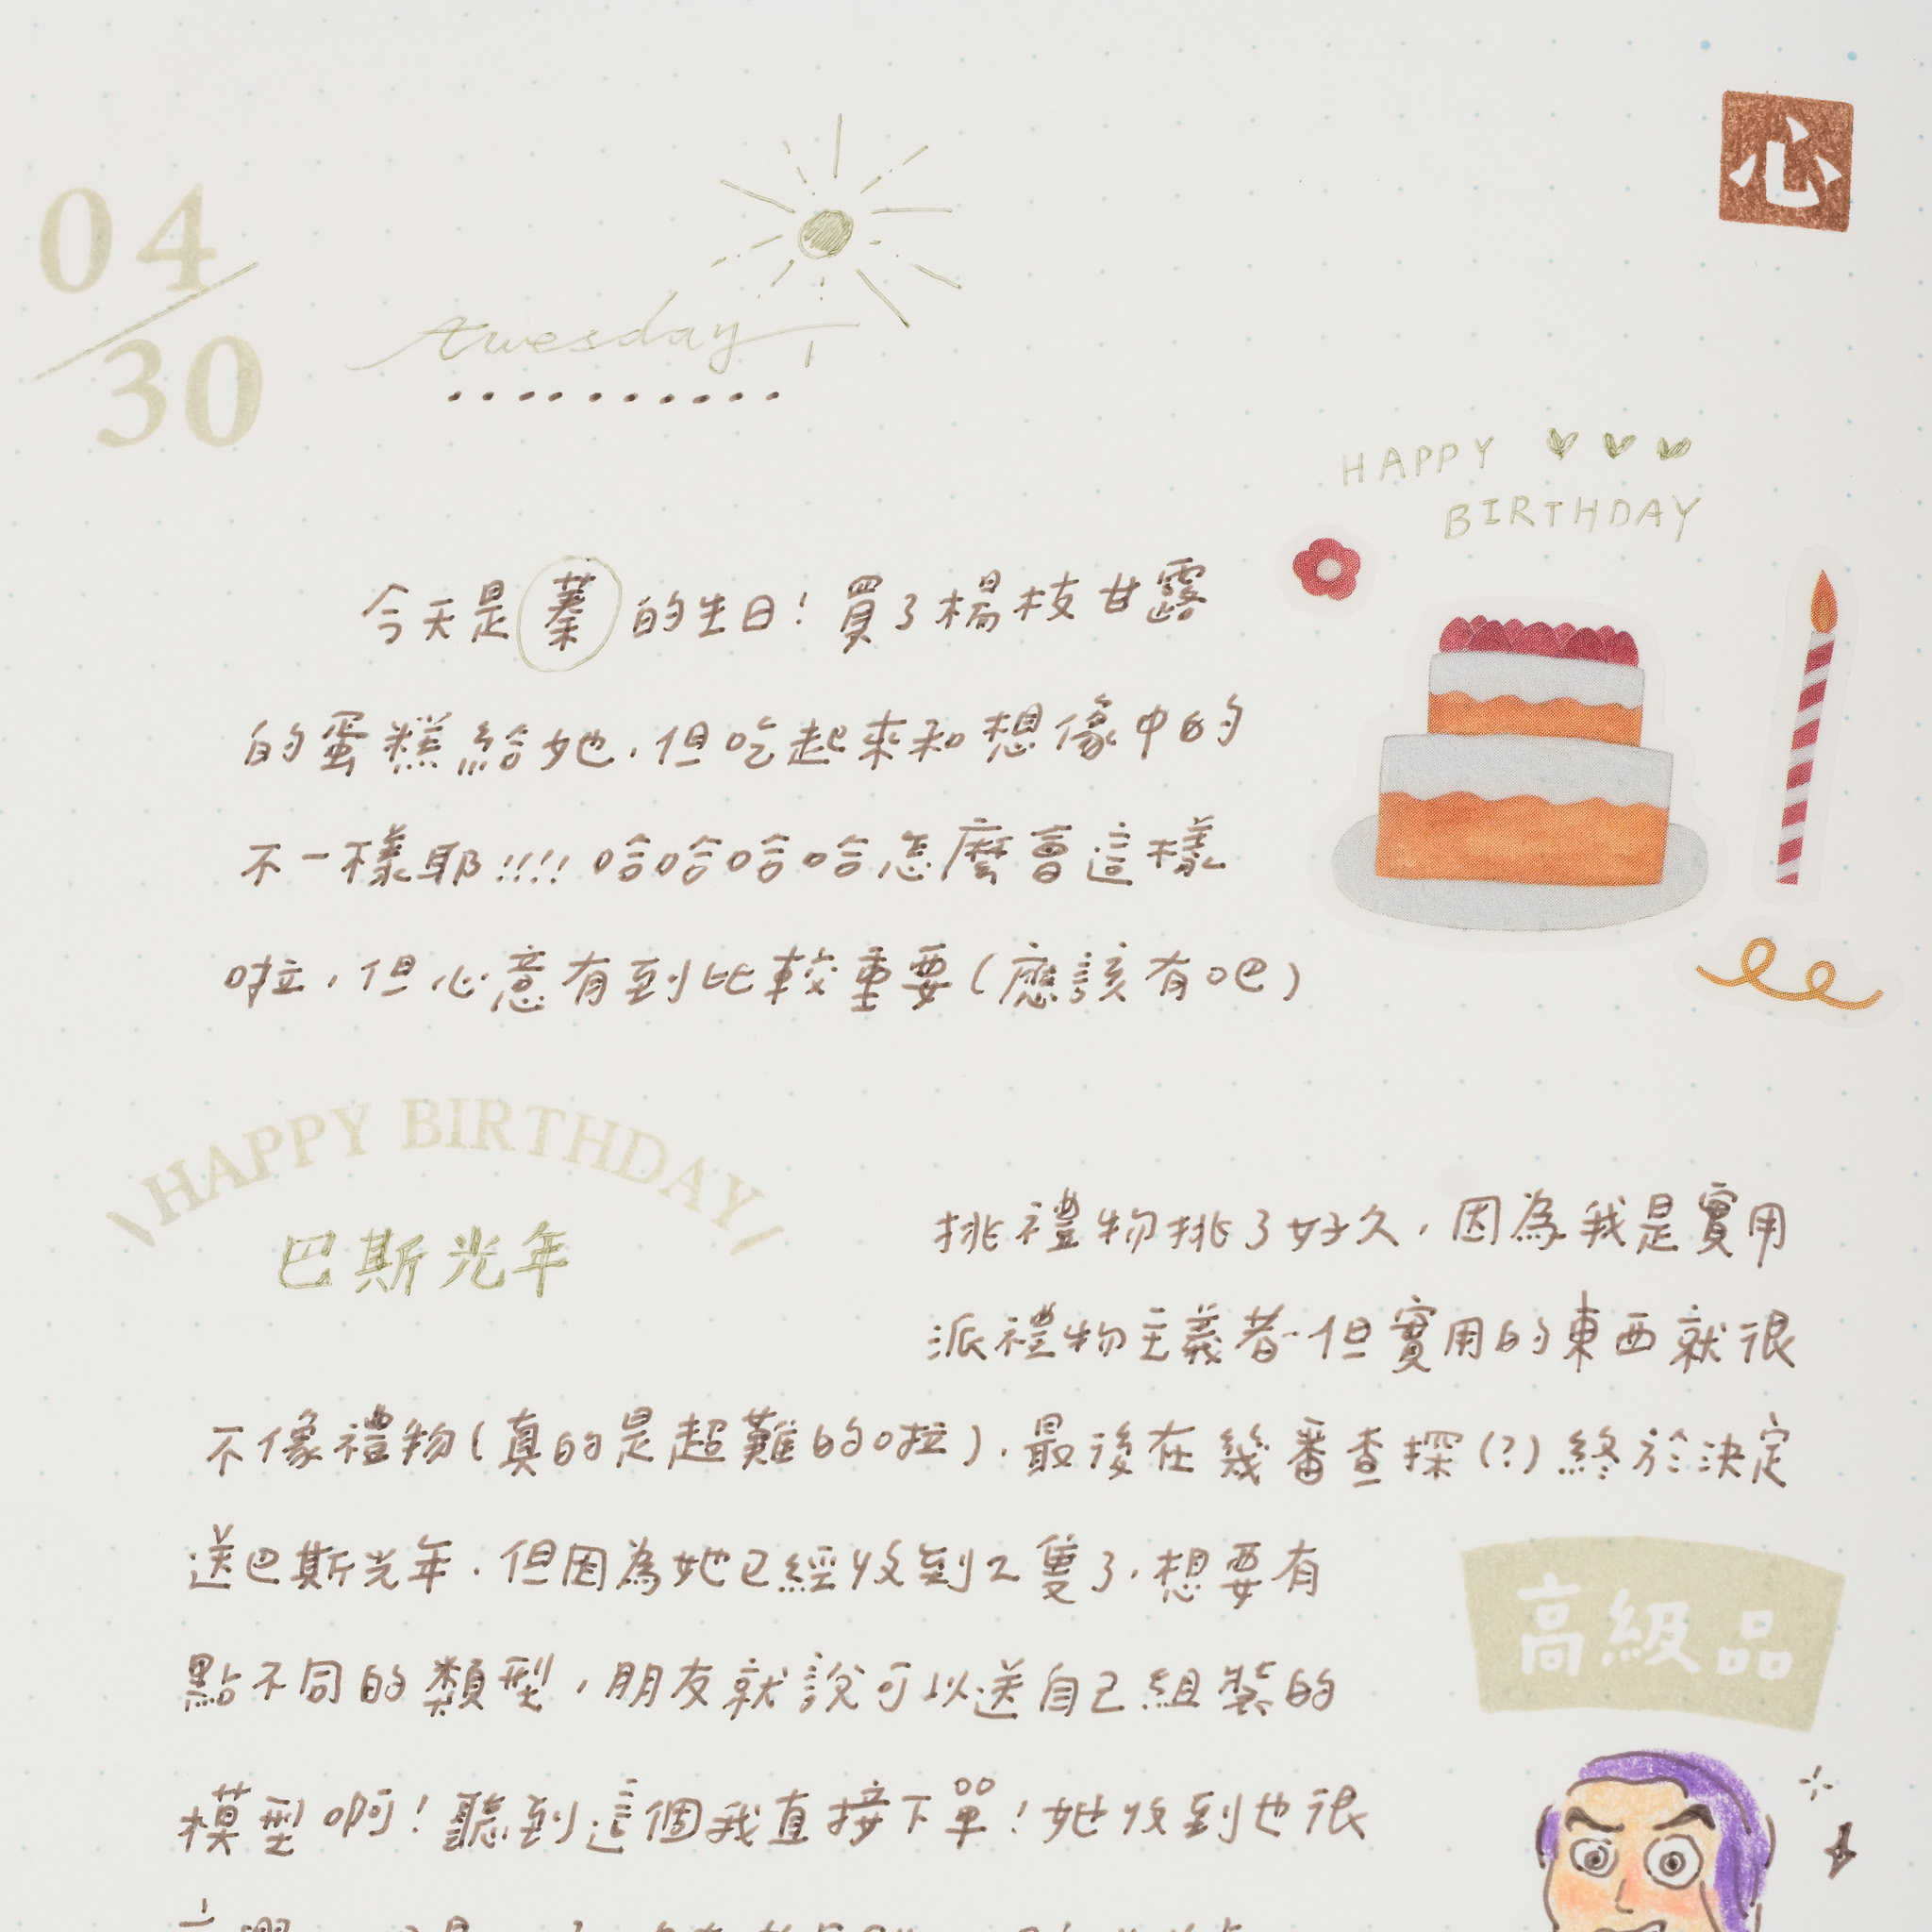 心
04
30
tuesday
HAPPY
BIRTHDAY
今天是蓁的生日!買了楊枝甘露
的蛋糕給她,但吃起來和想像中的
不一樣耶!!!!哈哈哈哈怎麼會這樣
啦,但心意有到比較重要(應該有吧)
HAPPY BIRTHDAY
巴斯光年
挑禮物挑了好久,因為我是實用
派禮物主義者…但實用的東西就很
不像禮物(真的是超難的啦).最後在幾番查探(?)終於決定
送巴斯光年.但因為她已經收到2隻了,想要有
高級品
點不同的類型,朋友就說可以送自己組裝的
模型啊!聽到這個我直接下單!她收到也很